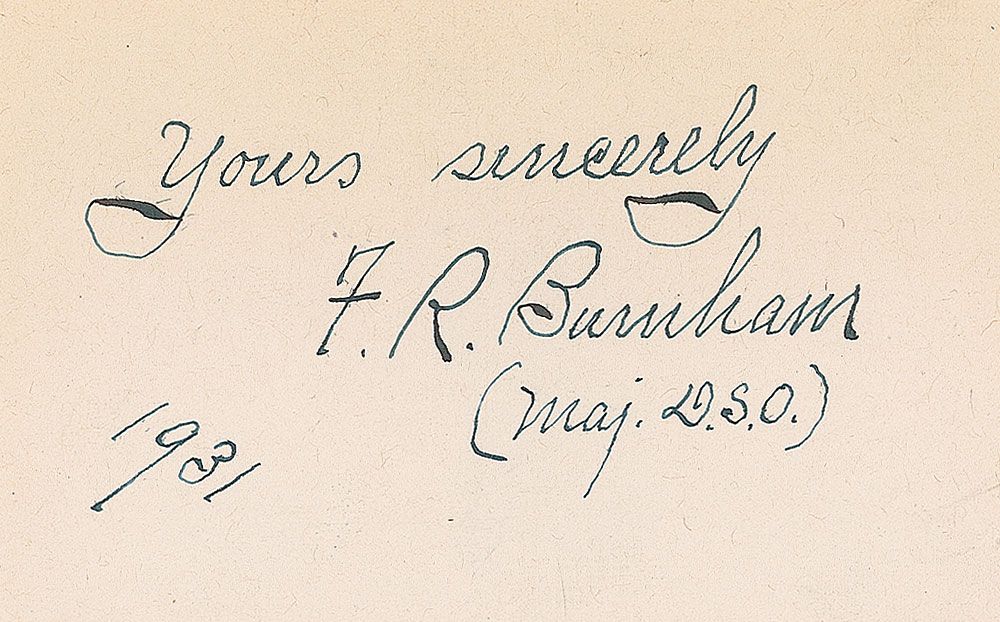 Yours sincerely
F. R. Burnham
(Maj. D.S.O.)
1931